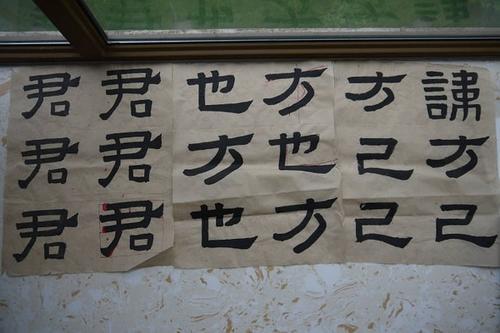 諱方己
方己己
方也方
也方也
君君君
君君君